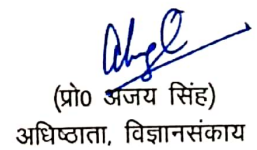 (प्रो0 अजय सिंह)
अधिष्ठाता, विज्ञानसंकाय